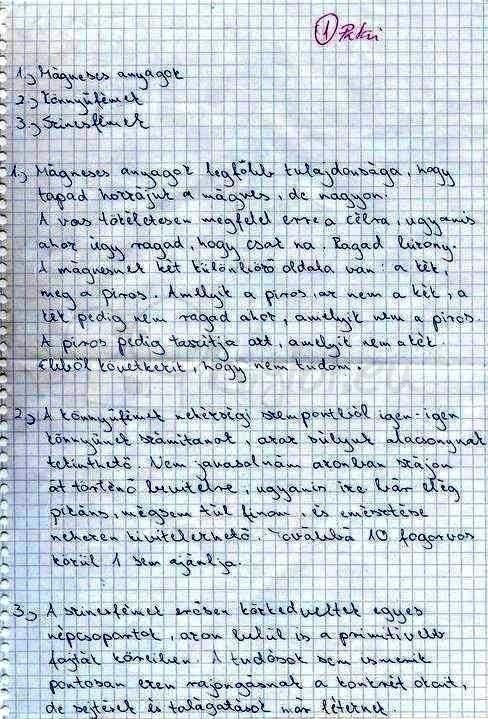 1 Pistu
1., Mágneses anyagok
2., Könnyűfémek
3., Színesfémek
1., Mágneses anyagok legfőbb tulajdonsága, hogy
tapad hozzájuk a mágnes, de nagyon.
A vas tökéletesen megfelel erre a célra, ugyanis
ahoz úgy ragad, hogy csak na. Ragad bizony.
A mágnesnek két különböző oldala van: a kék,
meg a piros. Amelyik a piros, az nem a kék, a
kék pedig nem ragad ahoz, amelyik nem a piros.
A piros pedig taszítja azt, amelyik nem a kék.
Ebből következik, hogy nem tudom.
2., A könnyűfémek nehézségi szempontból igen-igen
könnyűnek számítanak, azaz súlyuk alacsonynak
tekinthető. Nem javasolnám azonban szájon
át történő bevitelre, ugyanis íze bár elég
pikáns, mégsem túl finom, és emésztése
nehezen kivitelezhető. Továbbá 10 fogorvos
közül 1 sem ajánlja.
3., A színesfémek erősen közkedveltek egyes
népcsoportok, azon belül is a primitívebb
fajták körében. A tudósok sem ismerik
pontosan ezen rajongásnak a konkrét okait,
de sejtések és találgatások már léteznek.